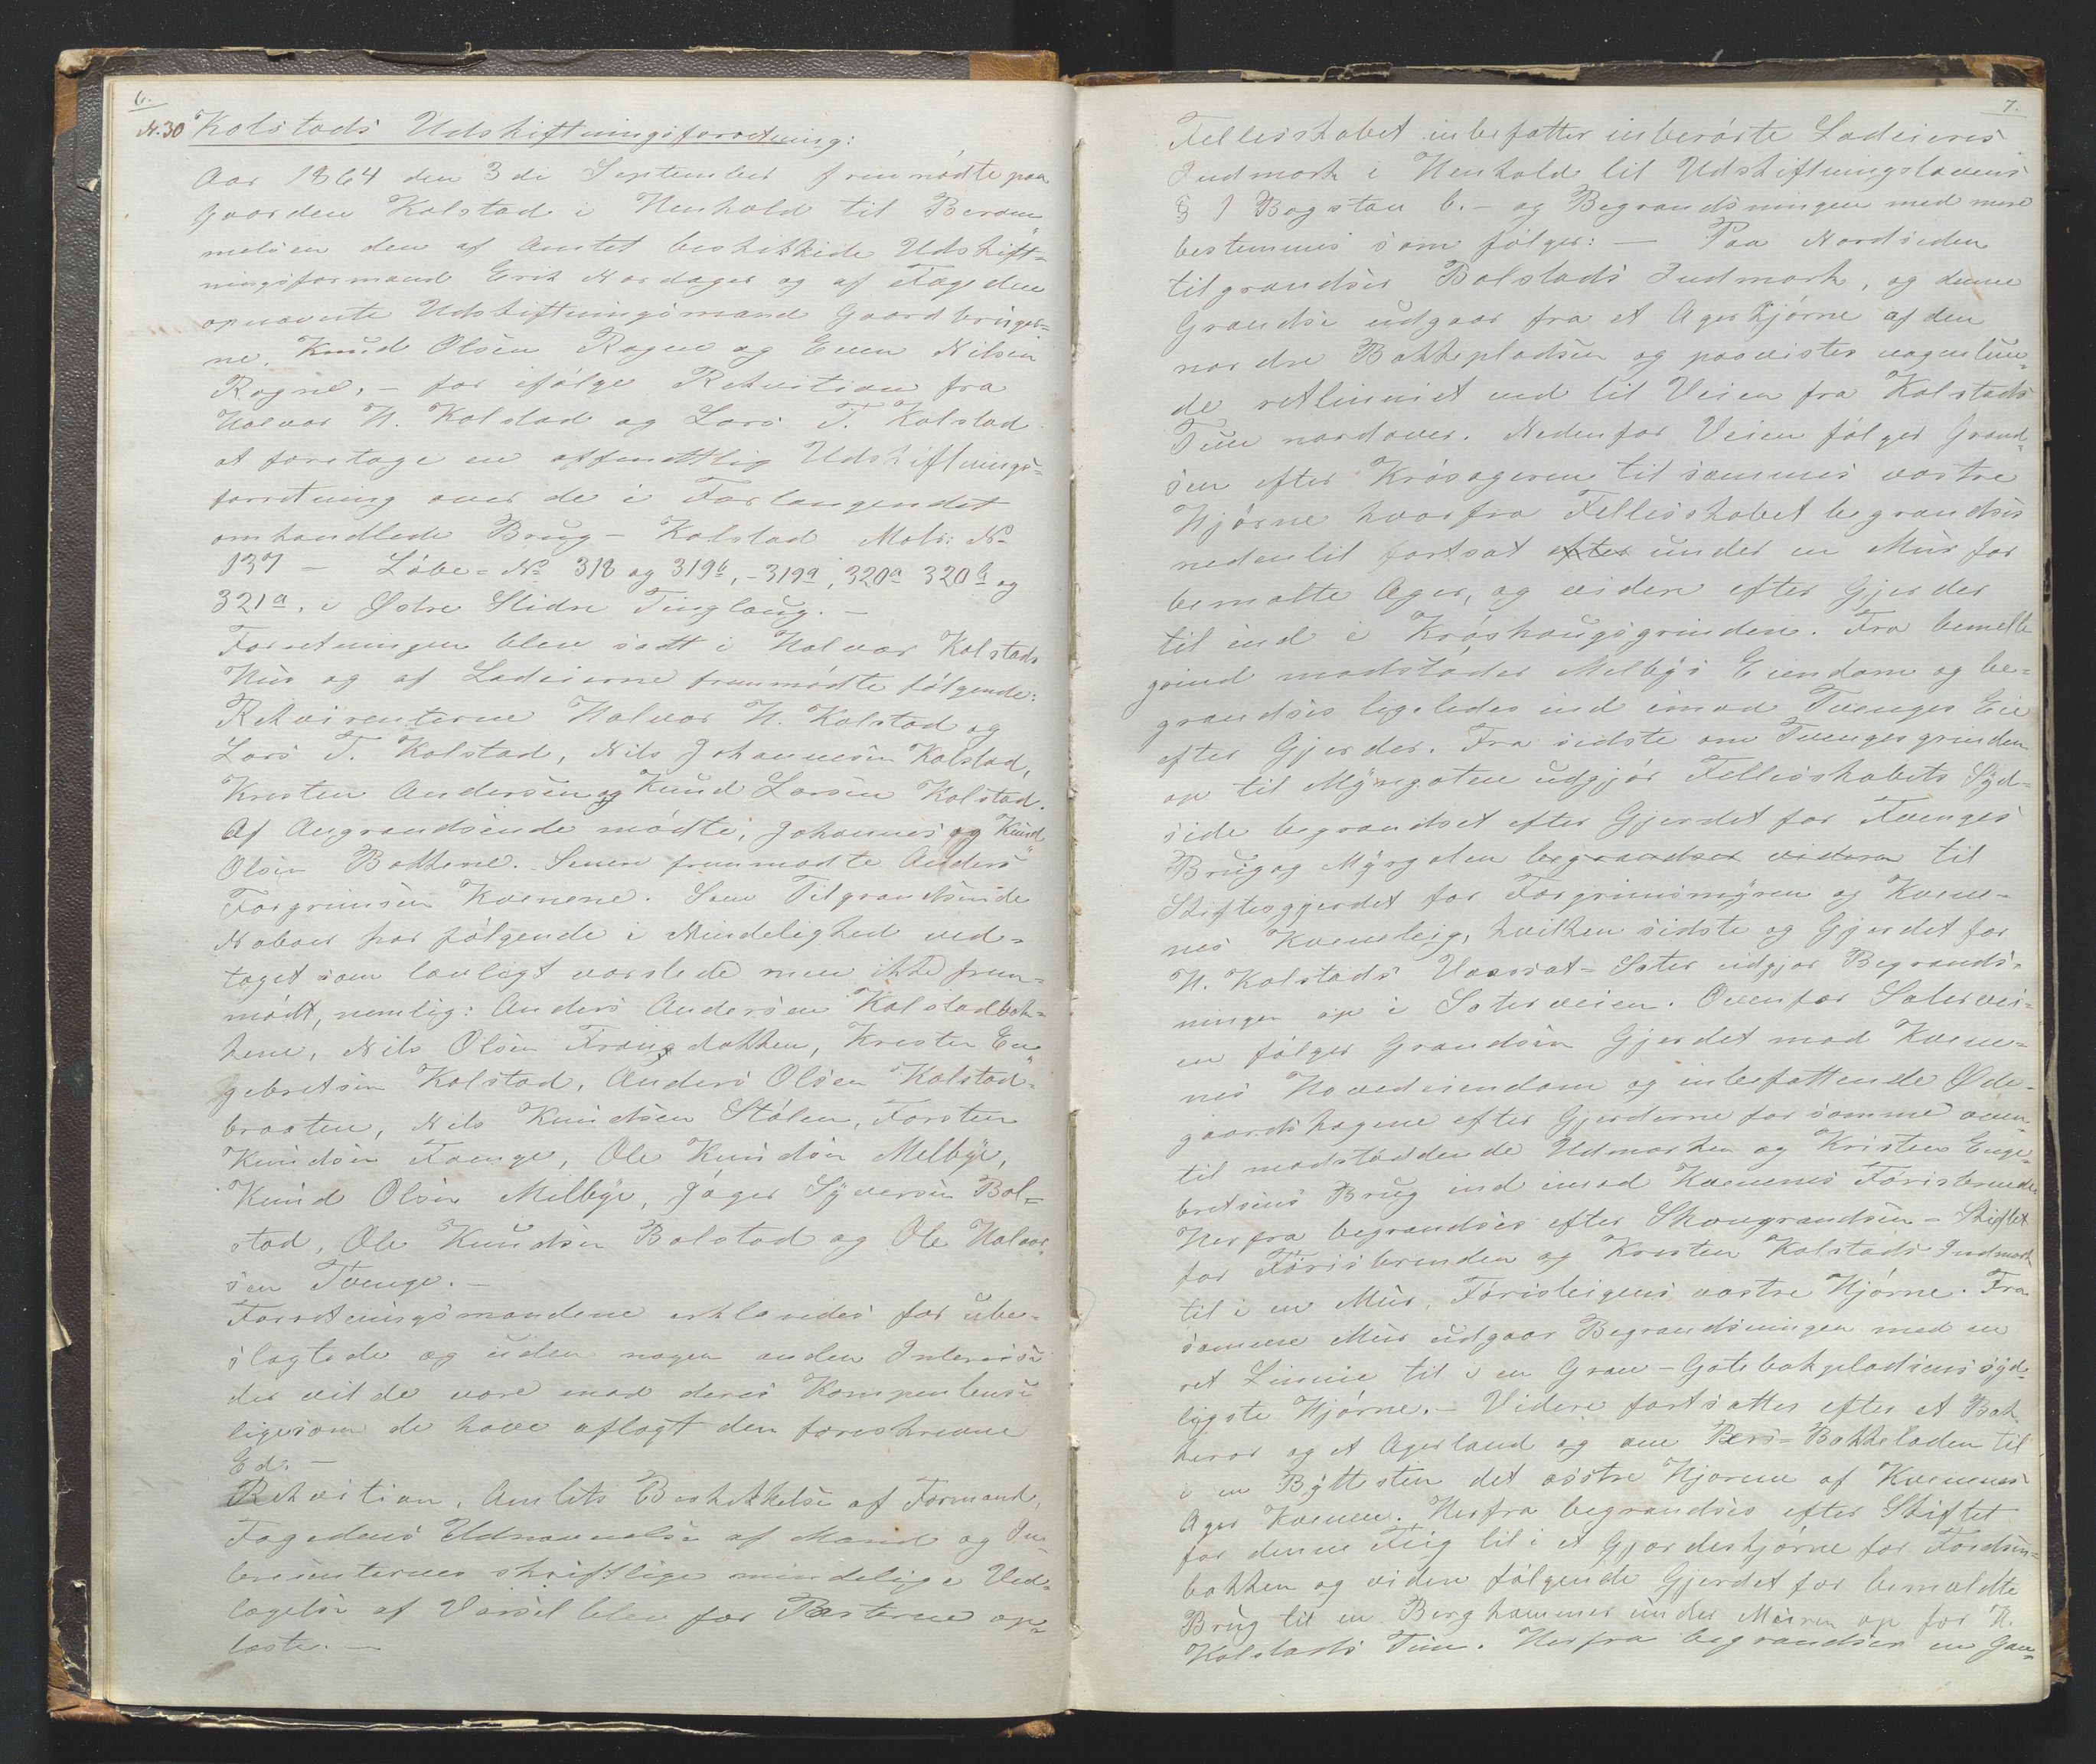 6.
N. 30 Kolstads Udskiftningsforretning:
Aar 1864 den 3die September fremmødte paa
Gaarden Kolstad i Henhold til Beram¬
melsen den af Amtet beskikkede Udskift¬
ningsformand Erik Nordager og af Fogeden
opnævnte Udskiftningsmænd Gaardbruger¬
ne, Knud Olsen Rogne og Even Nilsen
Rogne, – for ifølge Rekvisition fra
Halvor H. Kolstad og Lars T. Kolstad
at foretage en offentlig Udskiftnings¬
forretning over de i Forlangendet
omhandlede Brug – Kolstad Matr: No
137 – Løbe-No 318 og 319b, – 319a, 320a 320b og
321a, i Østre Slidre Tinglaug. –
Forretningen blev sadt i Halvor Kolstads
Hus og af Lodeierne fremmødte følgende:
Rekvirenterne Halvor H. Kolstad og
Lars T. Kolstad, Nils Johannesen Kolstad,
Kristen Andersen og Knud Larsen Kolstad.
Af Angrændsende mødte, Johannes og Knud
Olsen Bakkene. Senere fremmødte Anders
Torgrimsen Kvenene. Som Tilgrændsende
Naboer har følgende i Mindelighed ved¬
taget som lovligt varslede men ikke frem¬
mødt, nemlig: Anders Andersen Kolstadbak¬
kene, Nils Olsen Trangdokken, Kristen En¬
gebretsen Kolstad, Anders Olsen Kolstad¬
braaten, Nils Knudsen Stølen, Torsten
Knudsen Tvenge, Ole Knudsen Melbye,
Knud Olsen Melbye, Jøger Syversen Bol¬
stad, Ole Knudsen Bolstad og Ole Halvor¬
sen Tvenge. –
Forretningsmændene erklæredes for ube¬
slægtede og uden nogen anden Interesse
der vilde være mod deres Kompentense
ligesom de have aflagt den foreskrevne
Ed. –
Rekvisition, Amtets Beskikkelse af Formand,
Fogedens Udnævnelse af Mænd og In¬
teresenternes skriftlige mindelige Ved¬
tagelse af Varsel blev for Parterne op¬
læste. –
7.
Fellesskabet inbefatter inberørte Lodeieres
Indmark i Henhold til Udskiftningslovens
§ 1 Bogstav b. – og Begrændsningen med mere
bestemmes som følger: – Paa Nordsiden
tilgrændser Bolstads Indmark, og denne
Grændse udgaar fra et Agerhjørne af den
nordre Bakkepladsen og paavistes
de retliniet ned til Veien fra Kolstads
Tun nordover. Nedenfor Veien følger Grænd¬
sen efter Krøsageren til sammes vestre
Hjørne hvorfra Fellesskabet begrændses
nedentil fortsat efter under en Mur for
bemelte Ager, og videre efter Gjerder
til ind i Krøshaugsgrinden. Fra bemelte
grind modstøder Melbys Eiendom og be¬
grændses ligeledes ind imod Tvenges Eie
efter Gjerder. Fra sidste om Tvengesgrinden
op til Myrgaten udgjør Fellesskabets Syd¬
side begrændset efter Gjerdet for Tvenges
Brug og Myrgaten begrændset videre til
Skiftesgjerdet for Torgrimsmyren og Kvene¬
nes Kveneleig, hvilken sidste og Gjerdet for
H. Kolstads Vaarsat-Sæter udgjør Begrænds¬
ningen op i Sæterveien. Ovenfor Sætervei¬
en følger Grændsen Gjerdet mod Kvene¬
nes Hovedeiendom og inbefattende Øde¬
gaardshagene efter Gjerderne for samme oven¬
til modstødende Udmarken og Kristen Enge¬
bretsens Brug ind imod Kvenenes Førisbrenden
Herfra begrændses efter Skovgrændsen – Skiftet
for Førisbrenden og Kristen Kolstads Indmark
til i en Mur, Førisleigens vestre Hjørne. Fra
samme Mur udgaar Begrændsningen med en
ret Linnie til i en Gran – Gotebakpladsens syd¬
ligste Hjørne. – Videre fortsættes efter et Bak¬
heror og et Agerland og ane Pers-Bakkeladen til
i en Byttesten det østre Hjørne af Kvenenes
Ager Kvenen. Herfra begrændses efter Skiftet
for denne Teig til i et Gjerdeshjørne for Tordsen¬
bakken og videre følgende Gjerdet for bemældte
Brug til en Berghammer under Muren op for H.
Kolstads Tun. Herfra begrændser en Gam¬